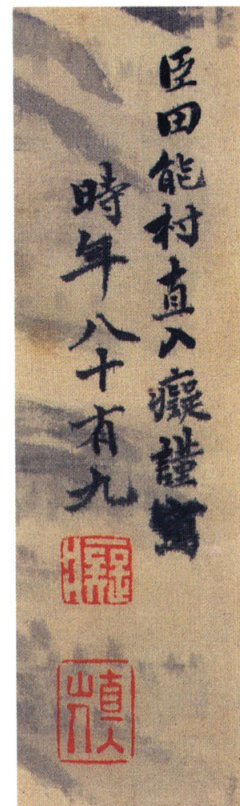 臣田能村直入癡謹寫
時年八十有九
癡